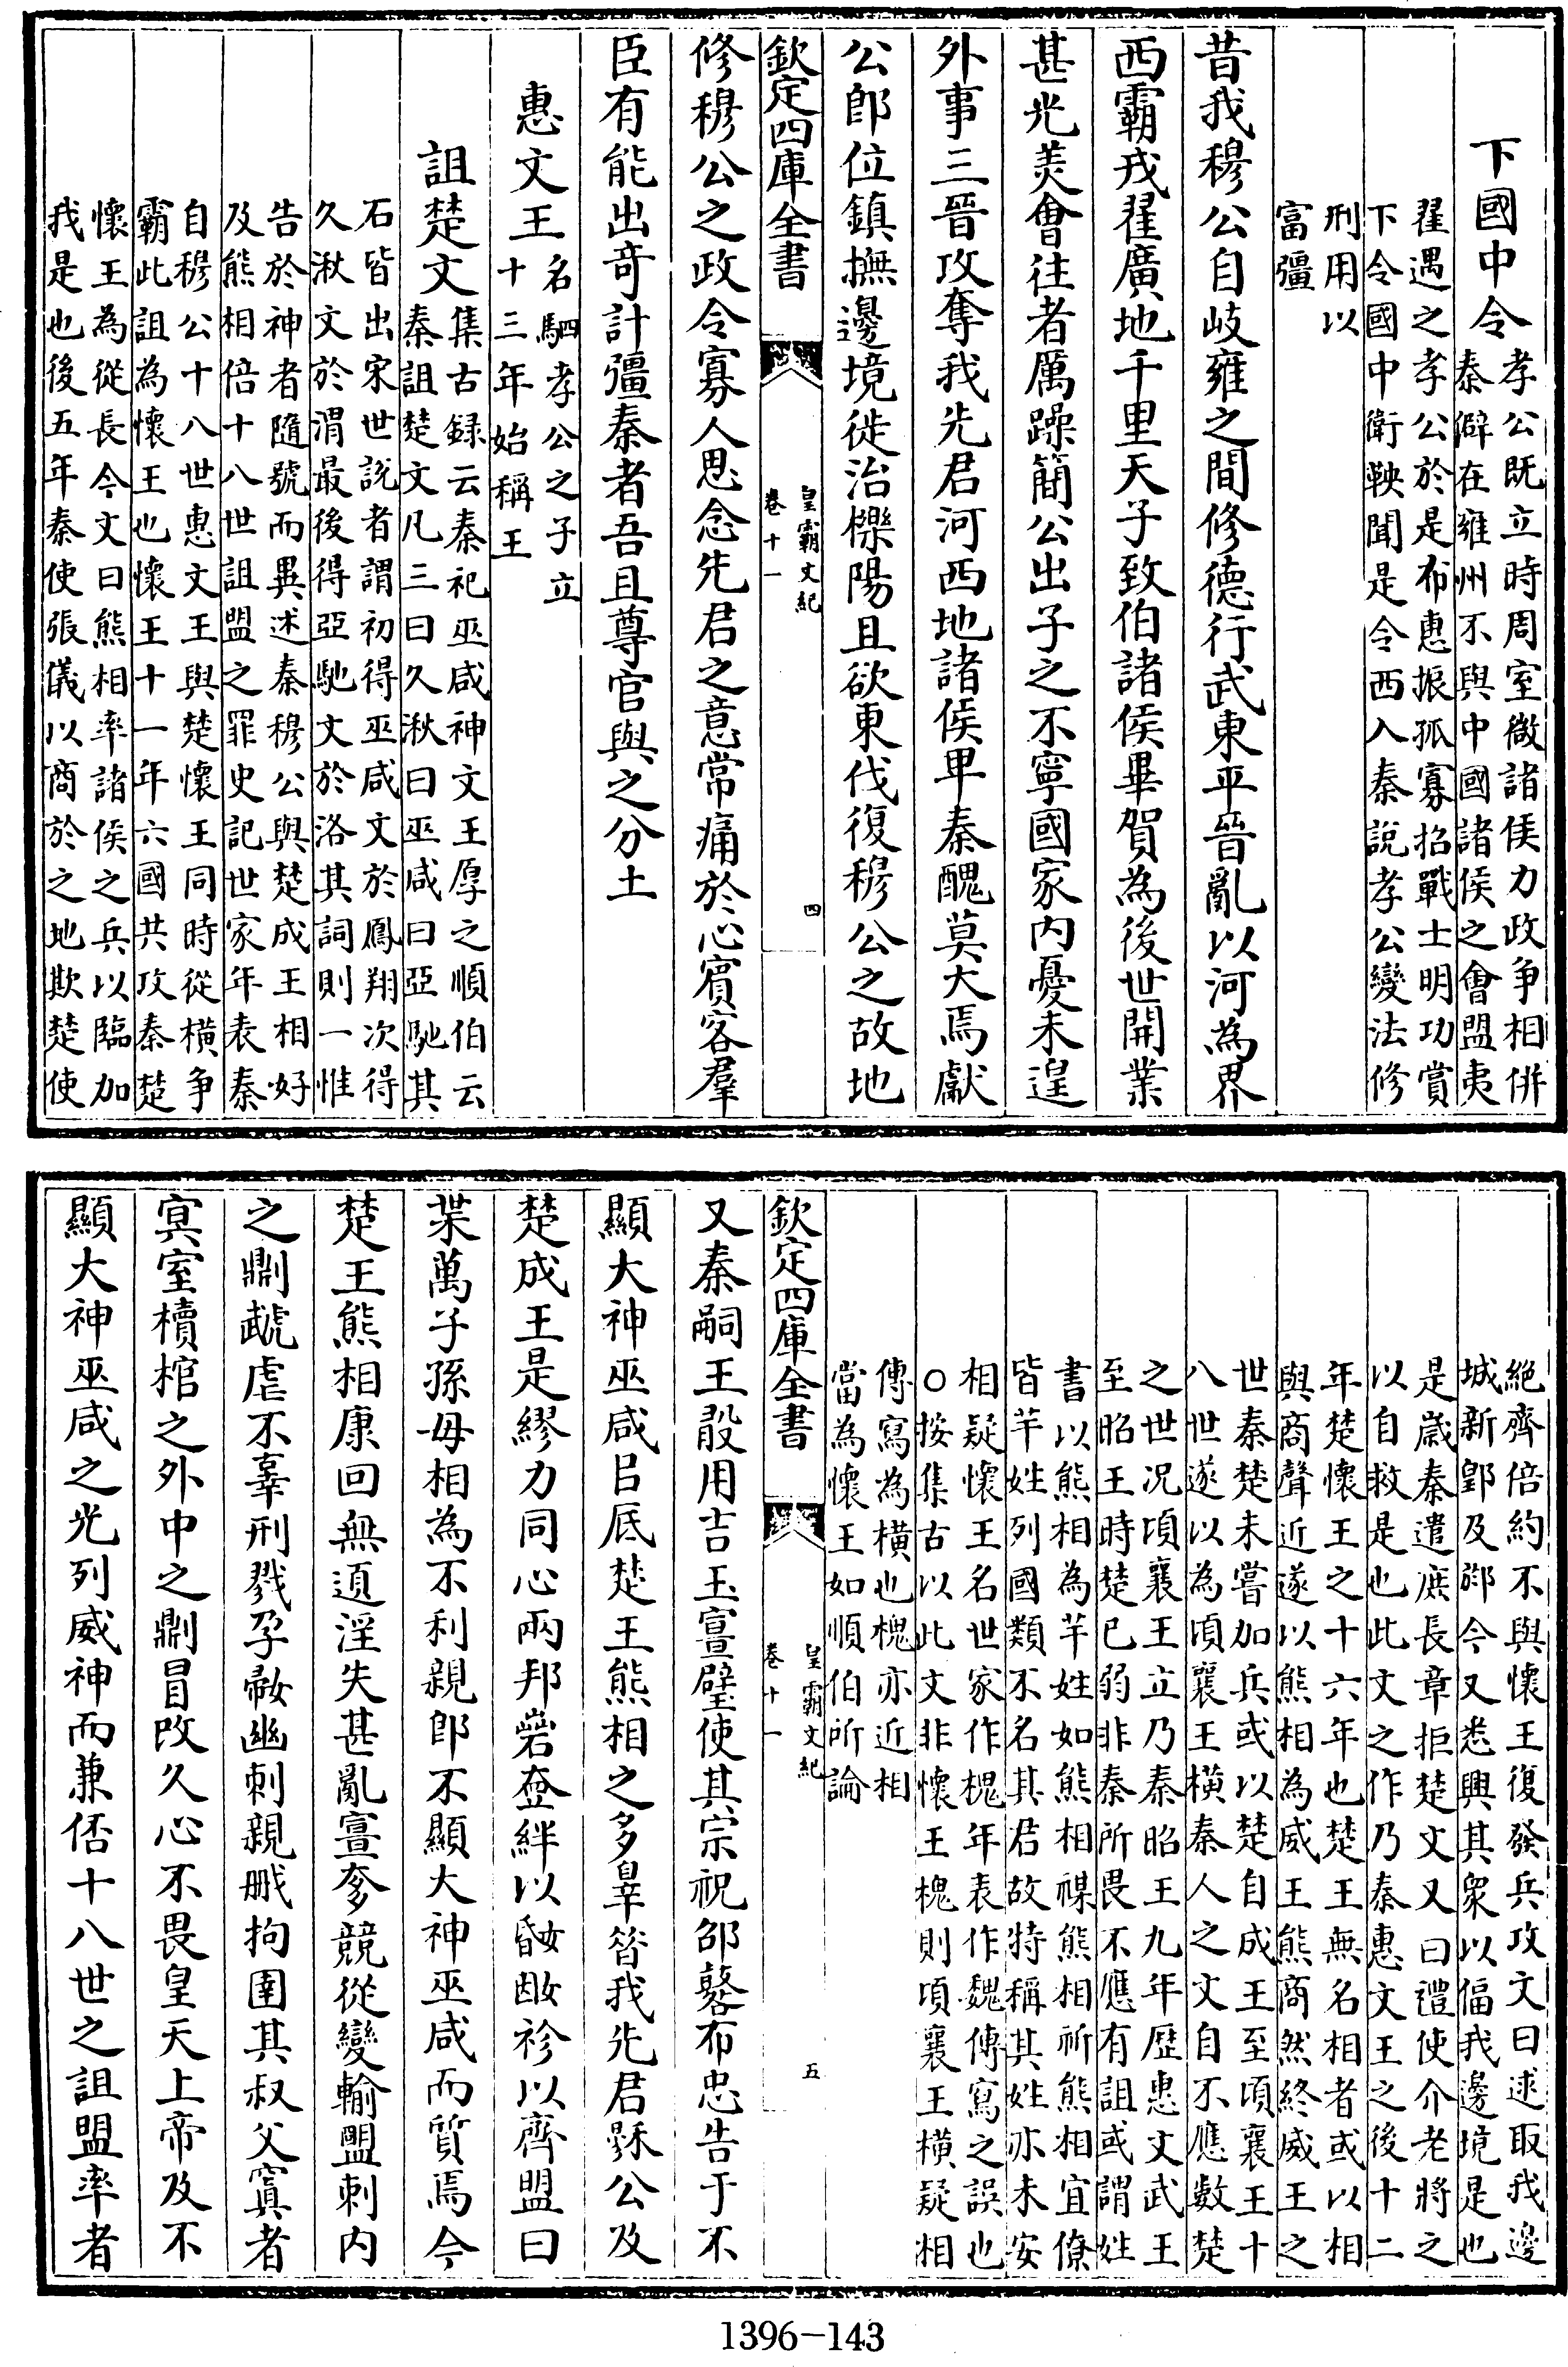 下國中令孝公既立時周室微諸侯力政争相併
秦僻在雍州不與中國諸侯之會盟夷
翟遇之孝公於是布惠振孤寡招戰士明功賞
下令國中衛鞅聞是令西入秦說孝公變法修
刑用以
富彊
昔我穆公自岐雍之間修德行武東平晉亂以河為界
西霸戎翟廣地千里天子致伯諸侯畢賀為後世開業
甚光美會往者厲躁簡公出子之不寧國家内憂未遑
外事三晉攻奪我先君河西地諸侯卑秦醜莫大焉獻
公即位鎮撫邊境徙治櫟陽且欲東伐復穆公之故地
欽定四庫全書
皇霸文紀
卷十一
四
修穆公之政令寡人思念先君之意常痛於心賓客羣
臣有能出奇計彊秦者吾且尊官與之分土
惠文王名駟孝公之子立
十三年始稱王
詛楚文集古録云秦祀巫咸神文王厚之順伯云
秦詛楚文凡三曰久湫曰巫咸曰亞駞其
石皆出宋世說者謂初得巫咸文於鳳翔次得
久湫文於渭最後得亞駞文於洛其詞則一惟
告於神者隨號而異述秦穆公與楚成王相好
及熊相倍十八世詛盟之罪史記世家年表秦
自穆公十八世惠文王與楚懷王同時從横争
霸此詛為懷王也懷王十一年六國共攻秦楚
懷王為從長今文曰熊相率諸侯之兵以臨加
我是也後五年秦使張儀以商於之地欺楚使
絶齊倍約不與懷王復發兵攻文曰逑取我邊
城新郢及䣊今又悉興其衆以偪我邊境是也
是歲秦遣庶長章拒楚文又曰禮使介老將之
以自救是也此文之作乃秦惠文王之後十二
年楚懷王之十六年也楚王無名相者或以相
與商聲近遂以熊相為威王熊商然終威王之
世秦楚未嘗加兵或以楚自成王至頃襄王十
八世遂以為頃襄王横秦人之文自不應數楚
之世况頃襄王立乃秦昭王九年歴惠文武王
至昭王時楚已弱非秦所畏不應有詛或謂姓
書以熊相為芊姓如熊相禖熊相祈熊相宜僚
皆芊姓列國類不名其君故特稱其姓亦未安
相疑懷王名世家作槐年表作魏傳寫之誤也
○按集古以此文非懷王槐則項襄王横疑相
傳寫為横也槐亦近相
當為懷王如順伯所論
欽定四庫全書
皇霸文紀
卷十一
五
又秦嗣王㪇用吉玉宣璧使其宗祝邵鼛布忠告于不
顯大神巫咸㠯底楚王熊相之多辠昝我先君穆公及
楚成王是繆力同心兩邦以𡚾以齊盟曰
枼萬子孫毋相為不利親即不顯大神巫咸而質焉今
楚王熊相康回無道淫失甚亂宣奓競從變輸盟刺内
之鼎虣虐不辜刑戮孕婦幽刺親戚拘圉其叔父寘者
冥室櫝棺之外中之鼎冒改久心不畏皇天上帝及不
顯大神巫咸之光列威神而兼倍十八世之詛盟率者
1396-143